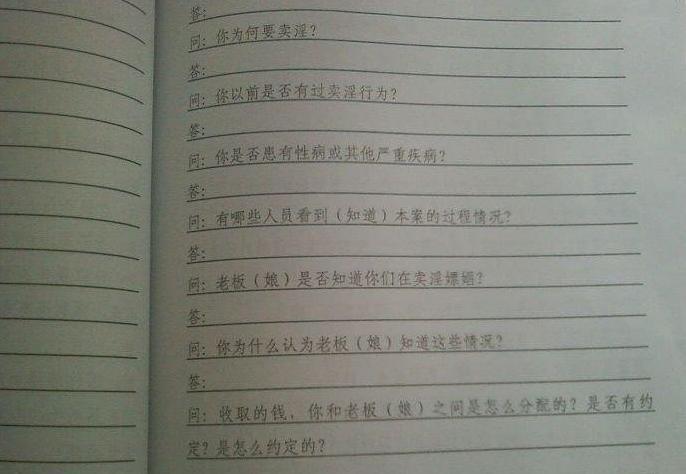 答:
问: 你为何要卖淫?
答:
问: 你以前是否有过卖淫行为?
答:
问: 你是否患有性病或其他严重疾病?
答:
问: 有哪些人员看到(知道)本案的过程情况?
答:
问: 老板(娘)是否知道你们在卖淫嫖娼?
答:
问: 你为什么认为老板(娘)知道这些情况?
答:
问: 收取的钱, 你和老板(娘)之间是怎么分配的? 是否有约
定? 是怎么约定的?